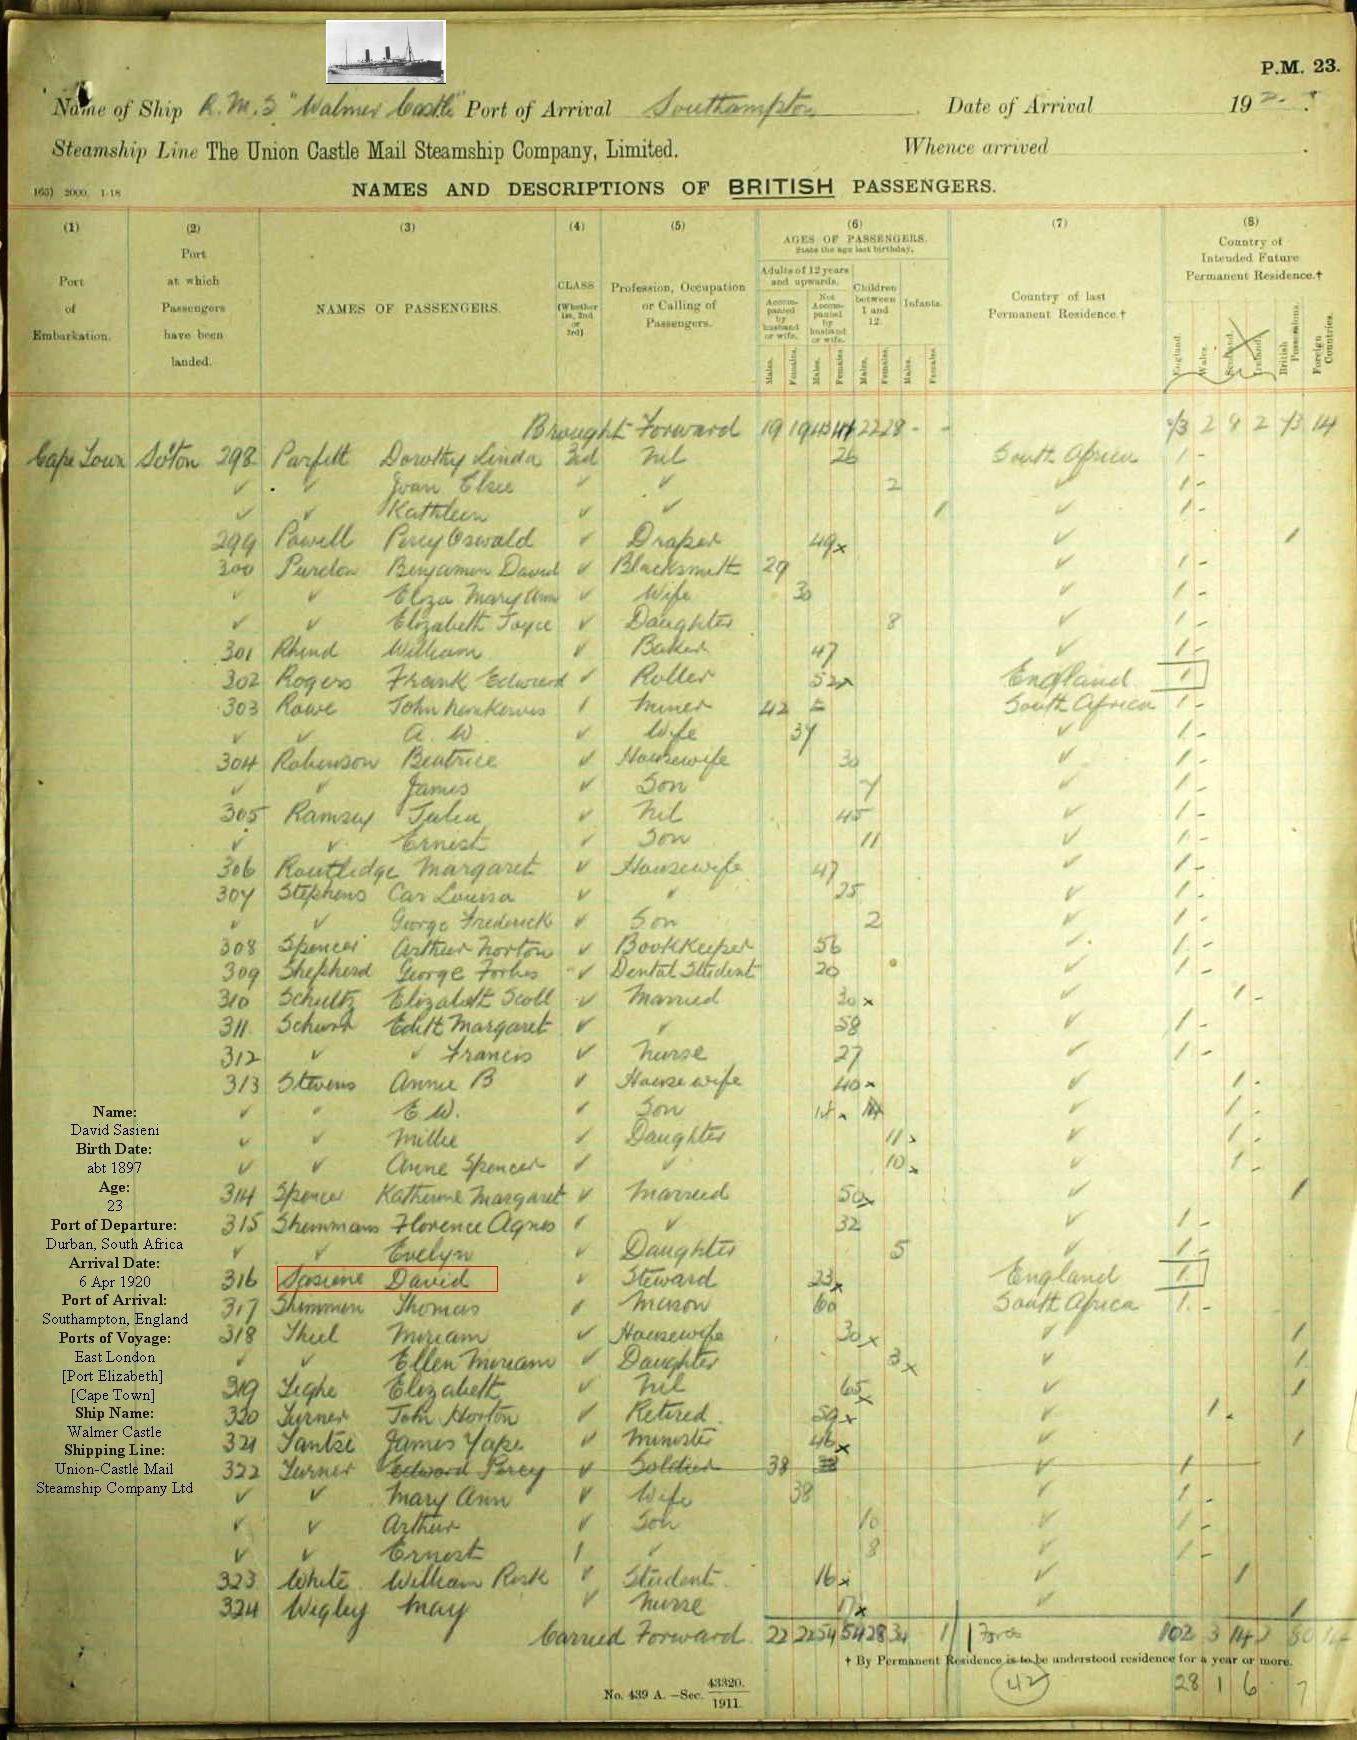 P.M. 23.
Name of Ship R.M.S "Walmer Castle" Port of Arrival Southampton Date of Arrival 19
Steamship Line The Union Castle Mail Steamship Company, Limited. Whence arrived
165) 2000. 1-18
NAMES AND DESCRIPTIONS OF BRITISH PASSENGERS.
(1) (2) (3) (4) (5) (6) (7) (8)
Port of Embarkation.
Port at which Passengers have been landed.
NAMES OF PASSENGERS.
CLASS (Whether 1st, 2nd or 3rd)
Profession, Occupation or Calling of Passengers.
AGES OF PASSENGERS.
State the age last birthday.
Adults of 12 years and upwards.
Accompanied by husband or wife.
Not Accompanied by husband or wife.
Children between 1 and 12.
Infants.
Males. Females. Males. Females. Males. Females. Males. Females.
Country of last Permanent Residence.†
Country of Intended Future Permanent Residence.†
England. Wales. Scotland. Ireland. British Possessions. Foreign Countries.
Brought Forward 19 19 43 44 22 28 - - 73 2 8 2 43 14
Cape Town So'ton 298 Parfitt Dorothy Linda 3rd Nil 26 South Africa 1 -
✓ ✓ Joan Elsie ✓ ✓ 2 ✓ 1 -
✓ ✓ Kathleen ✓ ✓ 1 ✓ 1 -
299 Powell Percy Oswald ✓ Draper 49x ✓ 1
300 Purdon Benjamin David ✓ Blacksmith 29 ✓ 1 -
✓ ✓ Eliza Mary Ann ✓ Wife 30 ✓ 1 -
✓ ✓ Elizabeth Joyce ✓ Daughter 8 ✓ 1 -
301 Rhind William ✓ Baker 47 ✓ 1 -
302 Rogers Frank Edward ✓ Roller 52x England 1
303 Rowe John ✓ Miner 42 South Africa 1 -
✓ ✓ A. W. ✓ Wife 37 ✓ 1 -
304 Robinson Beatrice ✓ Housewife 30 ✓ 1 -
✓ ✓ James ✓ Son 7 ✓ 1 -
305 Ramsay Julia ✓ Nil 45 ✓ 1 -
✓ ✓ Ernist ✓ Son 11 ✓ 1 -
306 Routlidge Margaret ✓ Housewife 47 ✓ 1 -
307 Stephens Car Louisa ✓ " 25 ✓ 1 -
✓ ✓ George Frederick ✓ Son 2 ✓ 1 -
308 Spencer Arthur Norton ✓ Bookkeeper 56 ✓ 1 -
309 Shepherd George Forbes ✓ Dental Student 20 ✓ 1 -
310 Schultz Elizabeth Scott ✓ Married 30 x ✓ 1 -
311 Edith Margaret ✓ ✓ 58 ✓ 1 -
312 ✓ ✓ Francis ✓ Nurse 27 ✓ 1 -
313 Stevens Annie B ✓ Housewife 40x ✓ 1 -
✓ " E W. ✓ Son ✓ 1 -
✓ " Millie ✓ Daughter 11 x ✓ 1 -
✓ ✓ Anne Spencer ✓ ✓ 10 x ✓ 1 -
314 Spencer Katherine Margaret ✓ Married 50x ✓ 1
315 Shemmans Florence Agnes ✓ ✓ 32 ✓ 1 -
✓ ✓ Evelyn ✓ Daughter 5 ✓ 1 -
316 Sasiene David ✓ Steward 23x England 1
317 Shimmen Thomas ✓ Mason 60 South Africa 1 -
318 Thiel Miriam ✓ Housewife 30x ✓ 1
✓ ✓ Ellen Miriam ✓ Daughter 3x ✓ 1
319 Tighe Elizabeth ✓ Nil 65x ✓ 1
320 Turner John Horton ✓ Retired 59x ✓ 1
321 Yantse James ✓ Minister 46x ✓ 1
322 Turner Edward Percy ✓ Soldier 38 ✓ 1
✓ ✓ Mary Ann ✓ Wife 38 ✓ 1 -
✓ ✓ Arthur ✓ Son 10 ✓ 1 -
✓ ✓ Ernest 1 ✓ 8 ✓ 1 -
323 White William Risk ✓ Student 16x ✓ 1
324 Wigley May ✓ Nurse 17x ✓ 1
Carried Forward 22 22 54 54 28 34 1 102 3 14 2 50
† By Permanent Residence is to be understood residence for a year or more.
No. 439 A.—Sec. 43320. 1911.
42 28 1 6 7
Name:
David Sasieni
Birth Date:
abt 1897
Age:
23
Port of Departure:
Durban, South Africa
Arrival Date:
6 Apr 1920
Port of Arrival:
Southampton, England
Ports of Voyage:
East London
[Port Elizabeth]
[Cape Town]
Ship Name:
Walmer Castle
Shipping Line:
Union-Castle Mail
Steamship Company Ltd